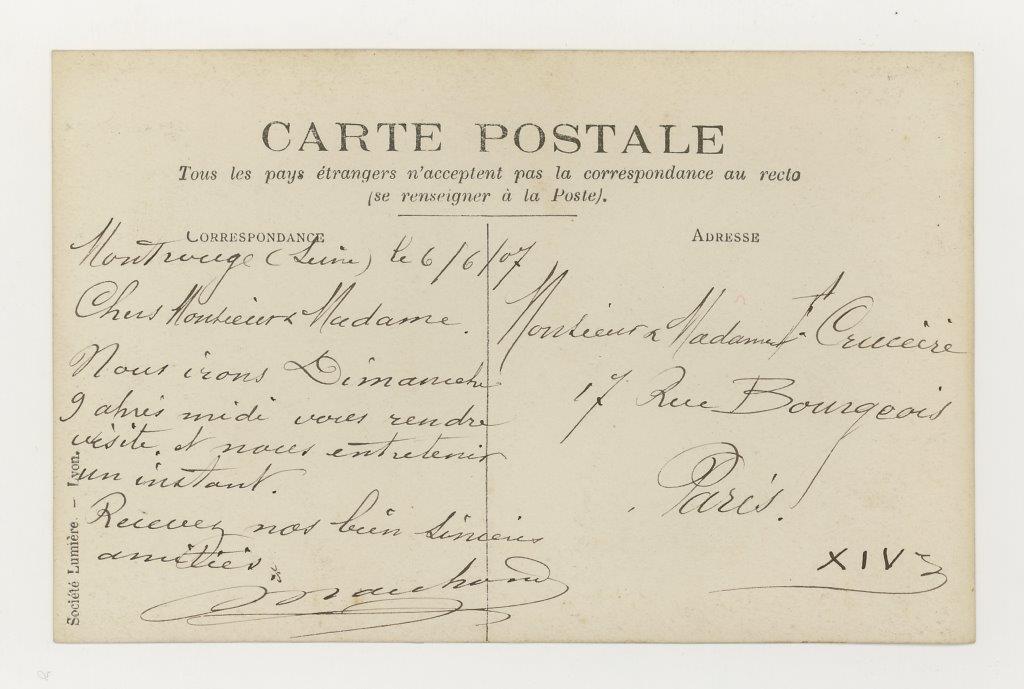 CARTE POSTALE
Tous les pays étrangers n'acceptent pas la correspondance au recto
(se renseigner à la Poste).
CORRESPONDANCE
ADRESSE
Montrouge (Seine) le 6/6/07
Chers Monsieur & Madame.
Nous irons Dimanche
9 après midi vous rendre
visite. et nous entretenir
un instant.
Recevez nos bien sincères
amitiés
Monsieur & Madame
17 Rue Bourgeois
Paris.
XIVe
Société Lumière. – Lyon.